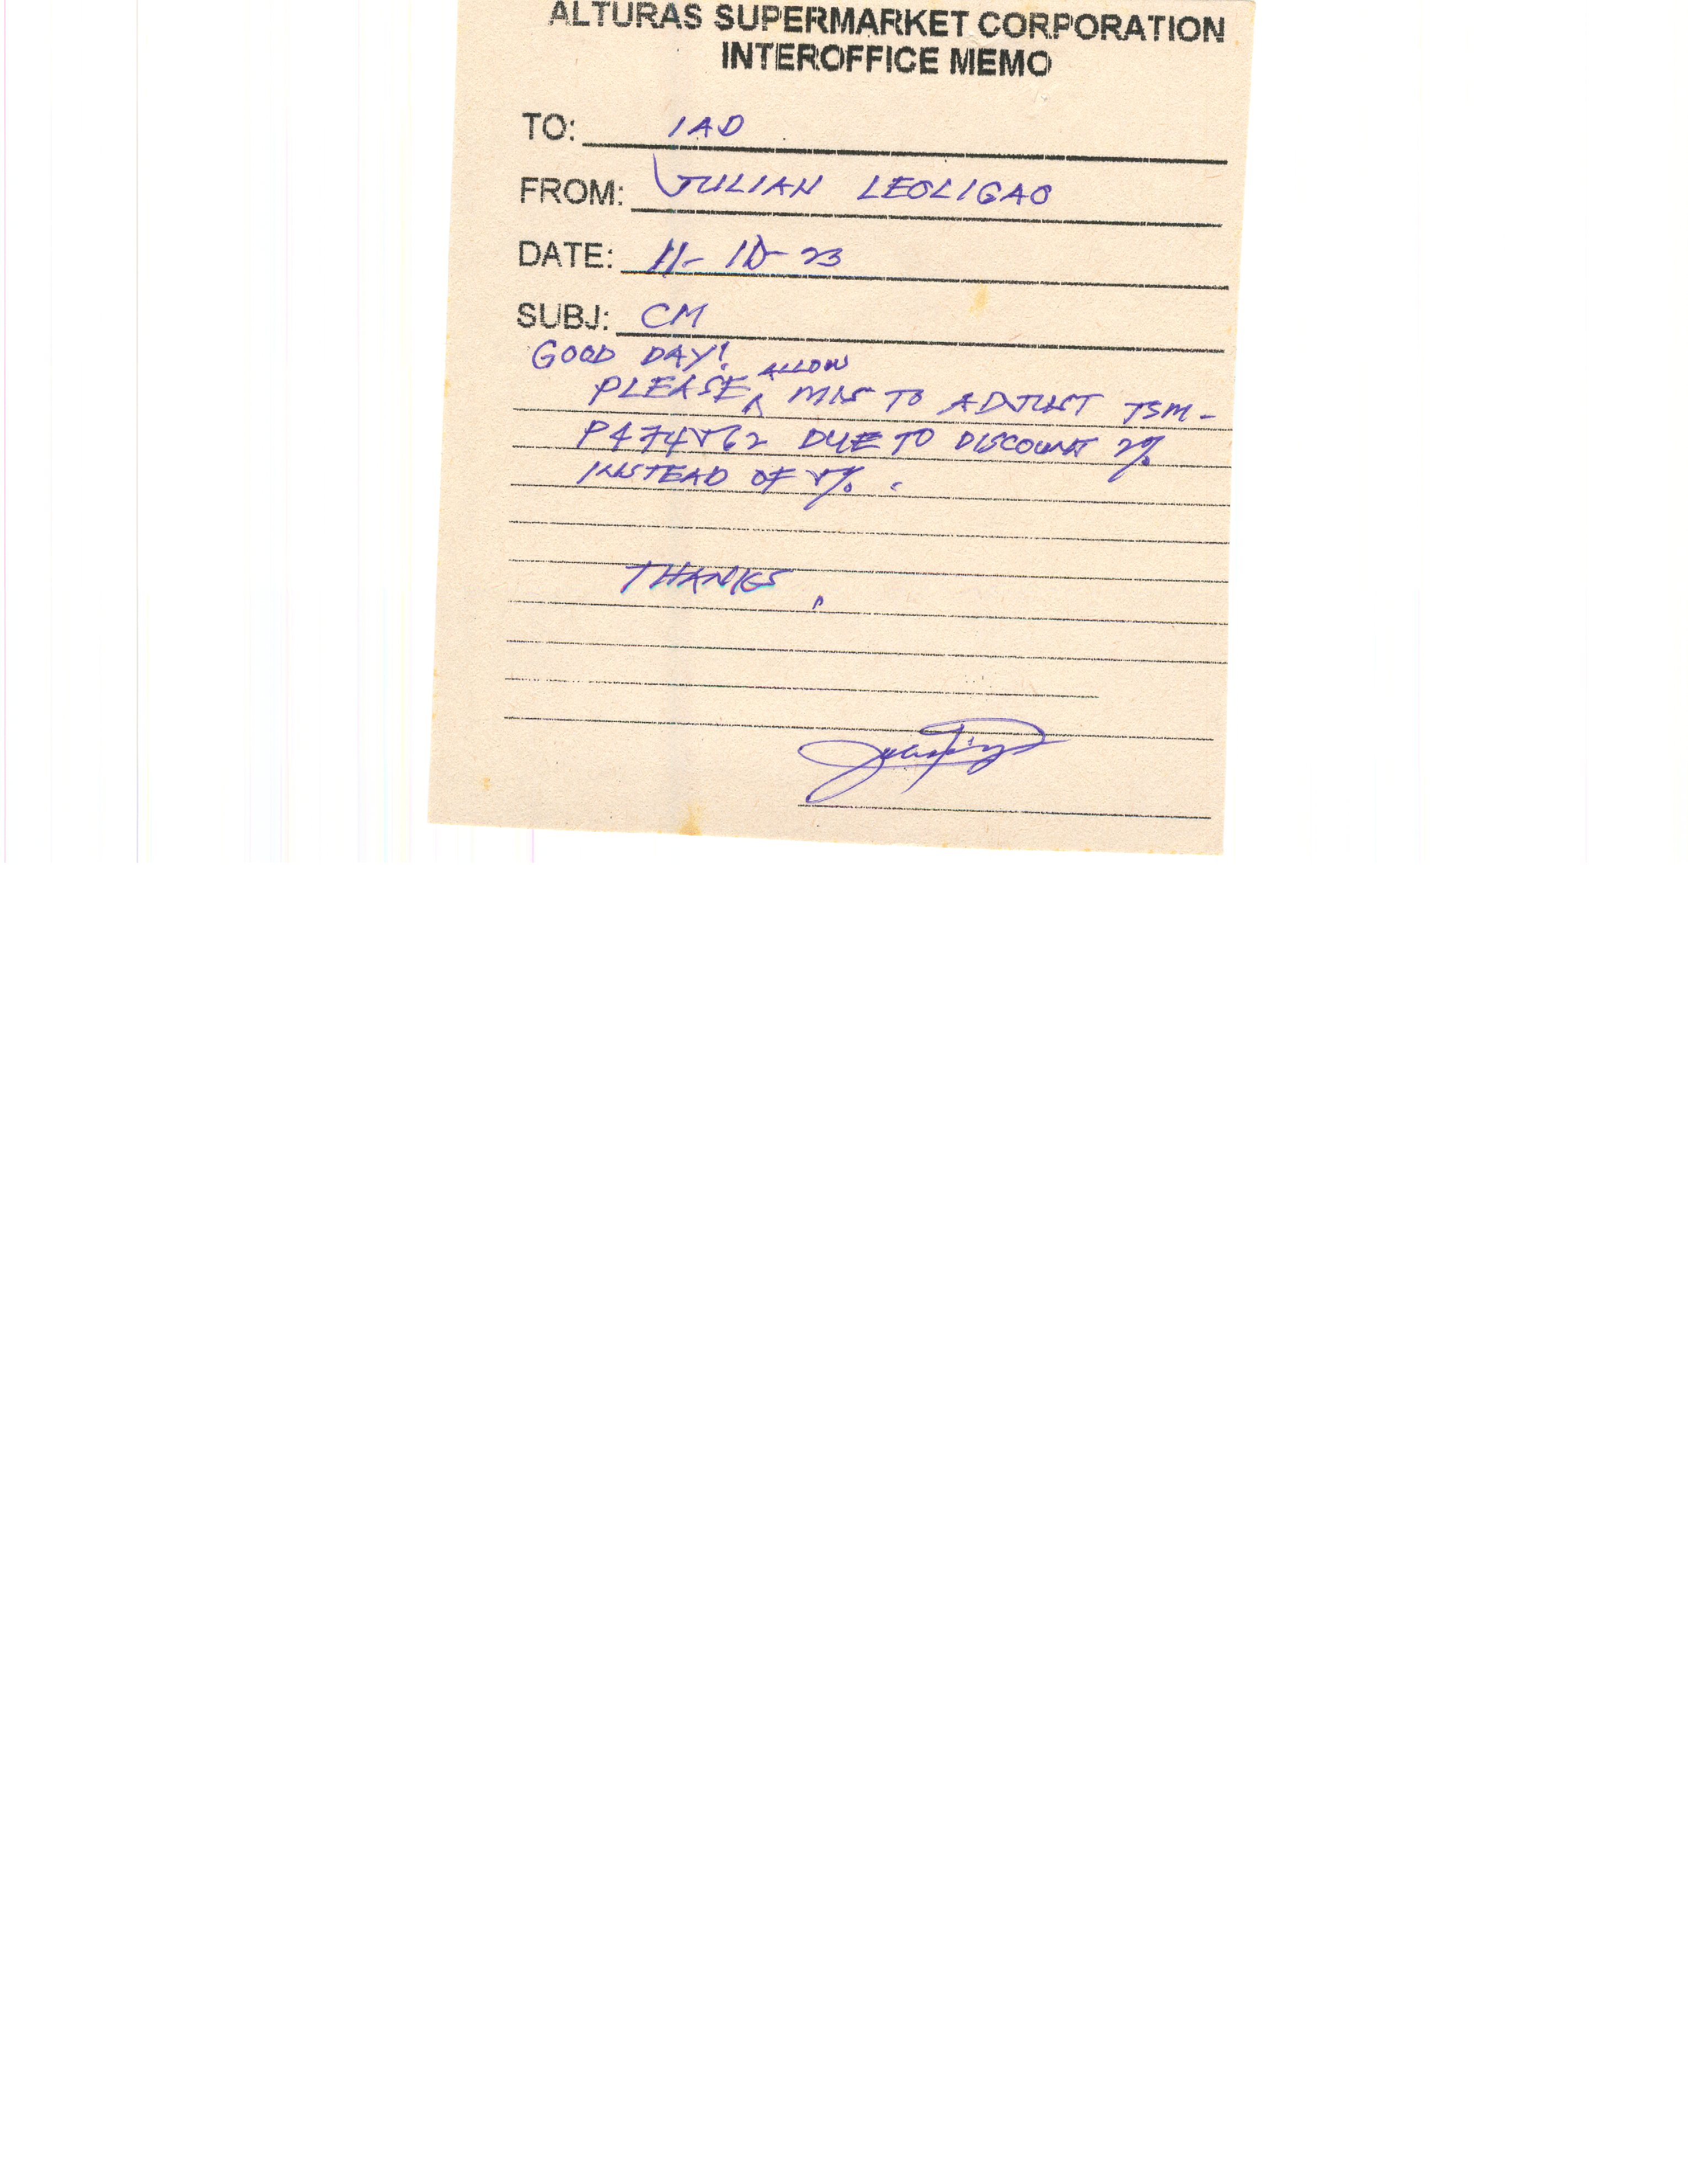 ALTURAS SUPERMARKET CORPORATION
INTEROFFICE MEMO
TO: IAD
FROM: JULIAN LEOLIGAO
DATE: 11-10-23
SUBJ: CM
GOOD DAY!
PLEASE ALLOW MIS TO ADJUST TSM-
P474862 DUE TO DISCOUNT 2%
INSTEAD OF 8%.
THANKS,